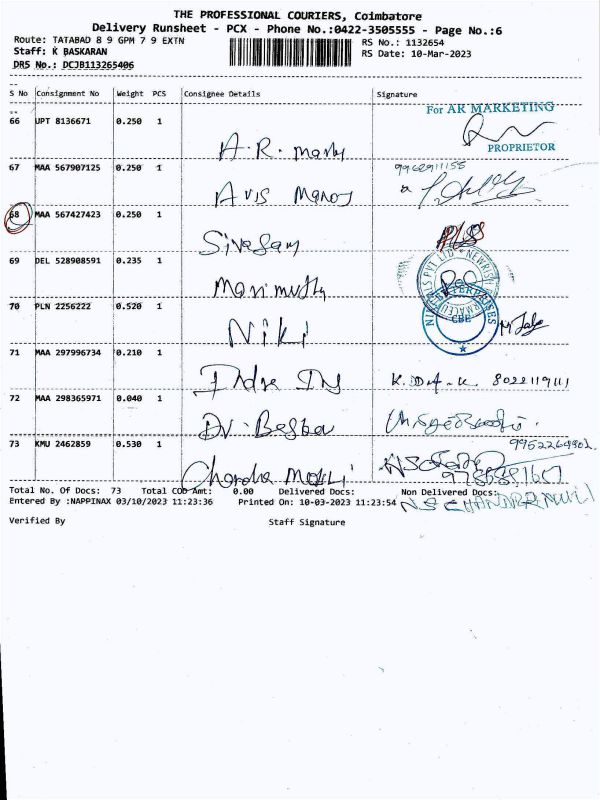 THE PROFESSIONAL COURIERS, Coimbatore
Delivery Runsheet - PCX - Phone No.:0422-3505555 - Page No.:6
Route: TATABAD 8 9 GPM 7 9 EXTN RS No.: 1132654
Staff: K BASKARAN RS Date: 10-Mar-2023
DRS No.: DCJB113265406
S No Consignment No Weight PCS Consignee Details Signature
For AR MARKETING
66 UPT 8136671 0.250 1
A.R.
PROPRIETOR
67 MAA 567907125 0.250 1
Avis Manoj
68 MAA 567427423 0.250 1
Sivasam
69 DEL 528908591 0.235 1
Marimuthu
70 PLN 2256222 0.520 1
Niki
CBE
71 MAA 297996734 0.210 1
72 MAA 298365971 0.040 1
Dr.
73 KMU 2462859 0.530 1 9952269901
Chandra Mouli
Total No. Of Docs: 73 Total COD Amt: 0.00 Delivered Docs: Non Delivered Docs:
Entered By :NAPPINAX 03/10/2023 11:23:36 Printed On: 10-03-2023 11:23:54 N.S CHANDRAMOULI
Verified By Staff Signature